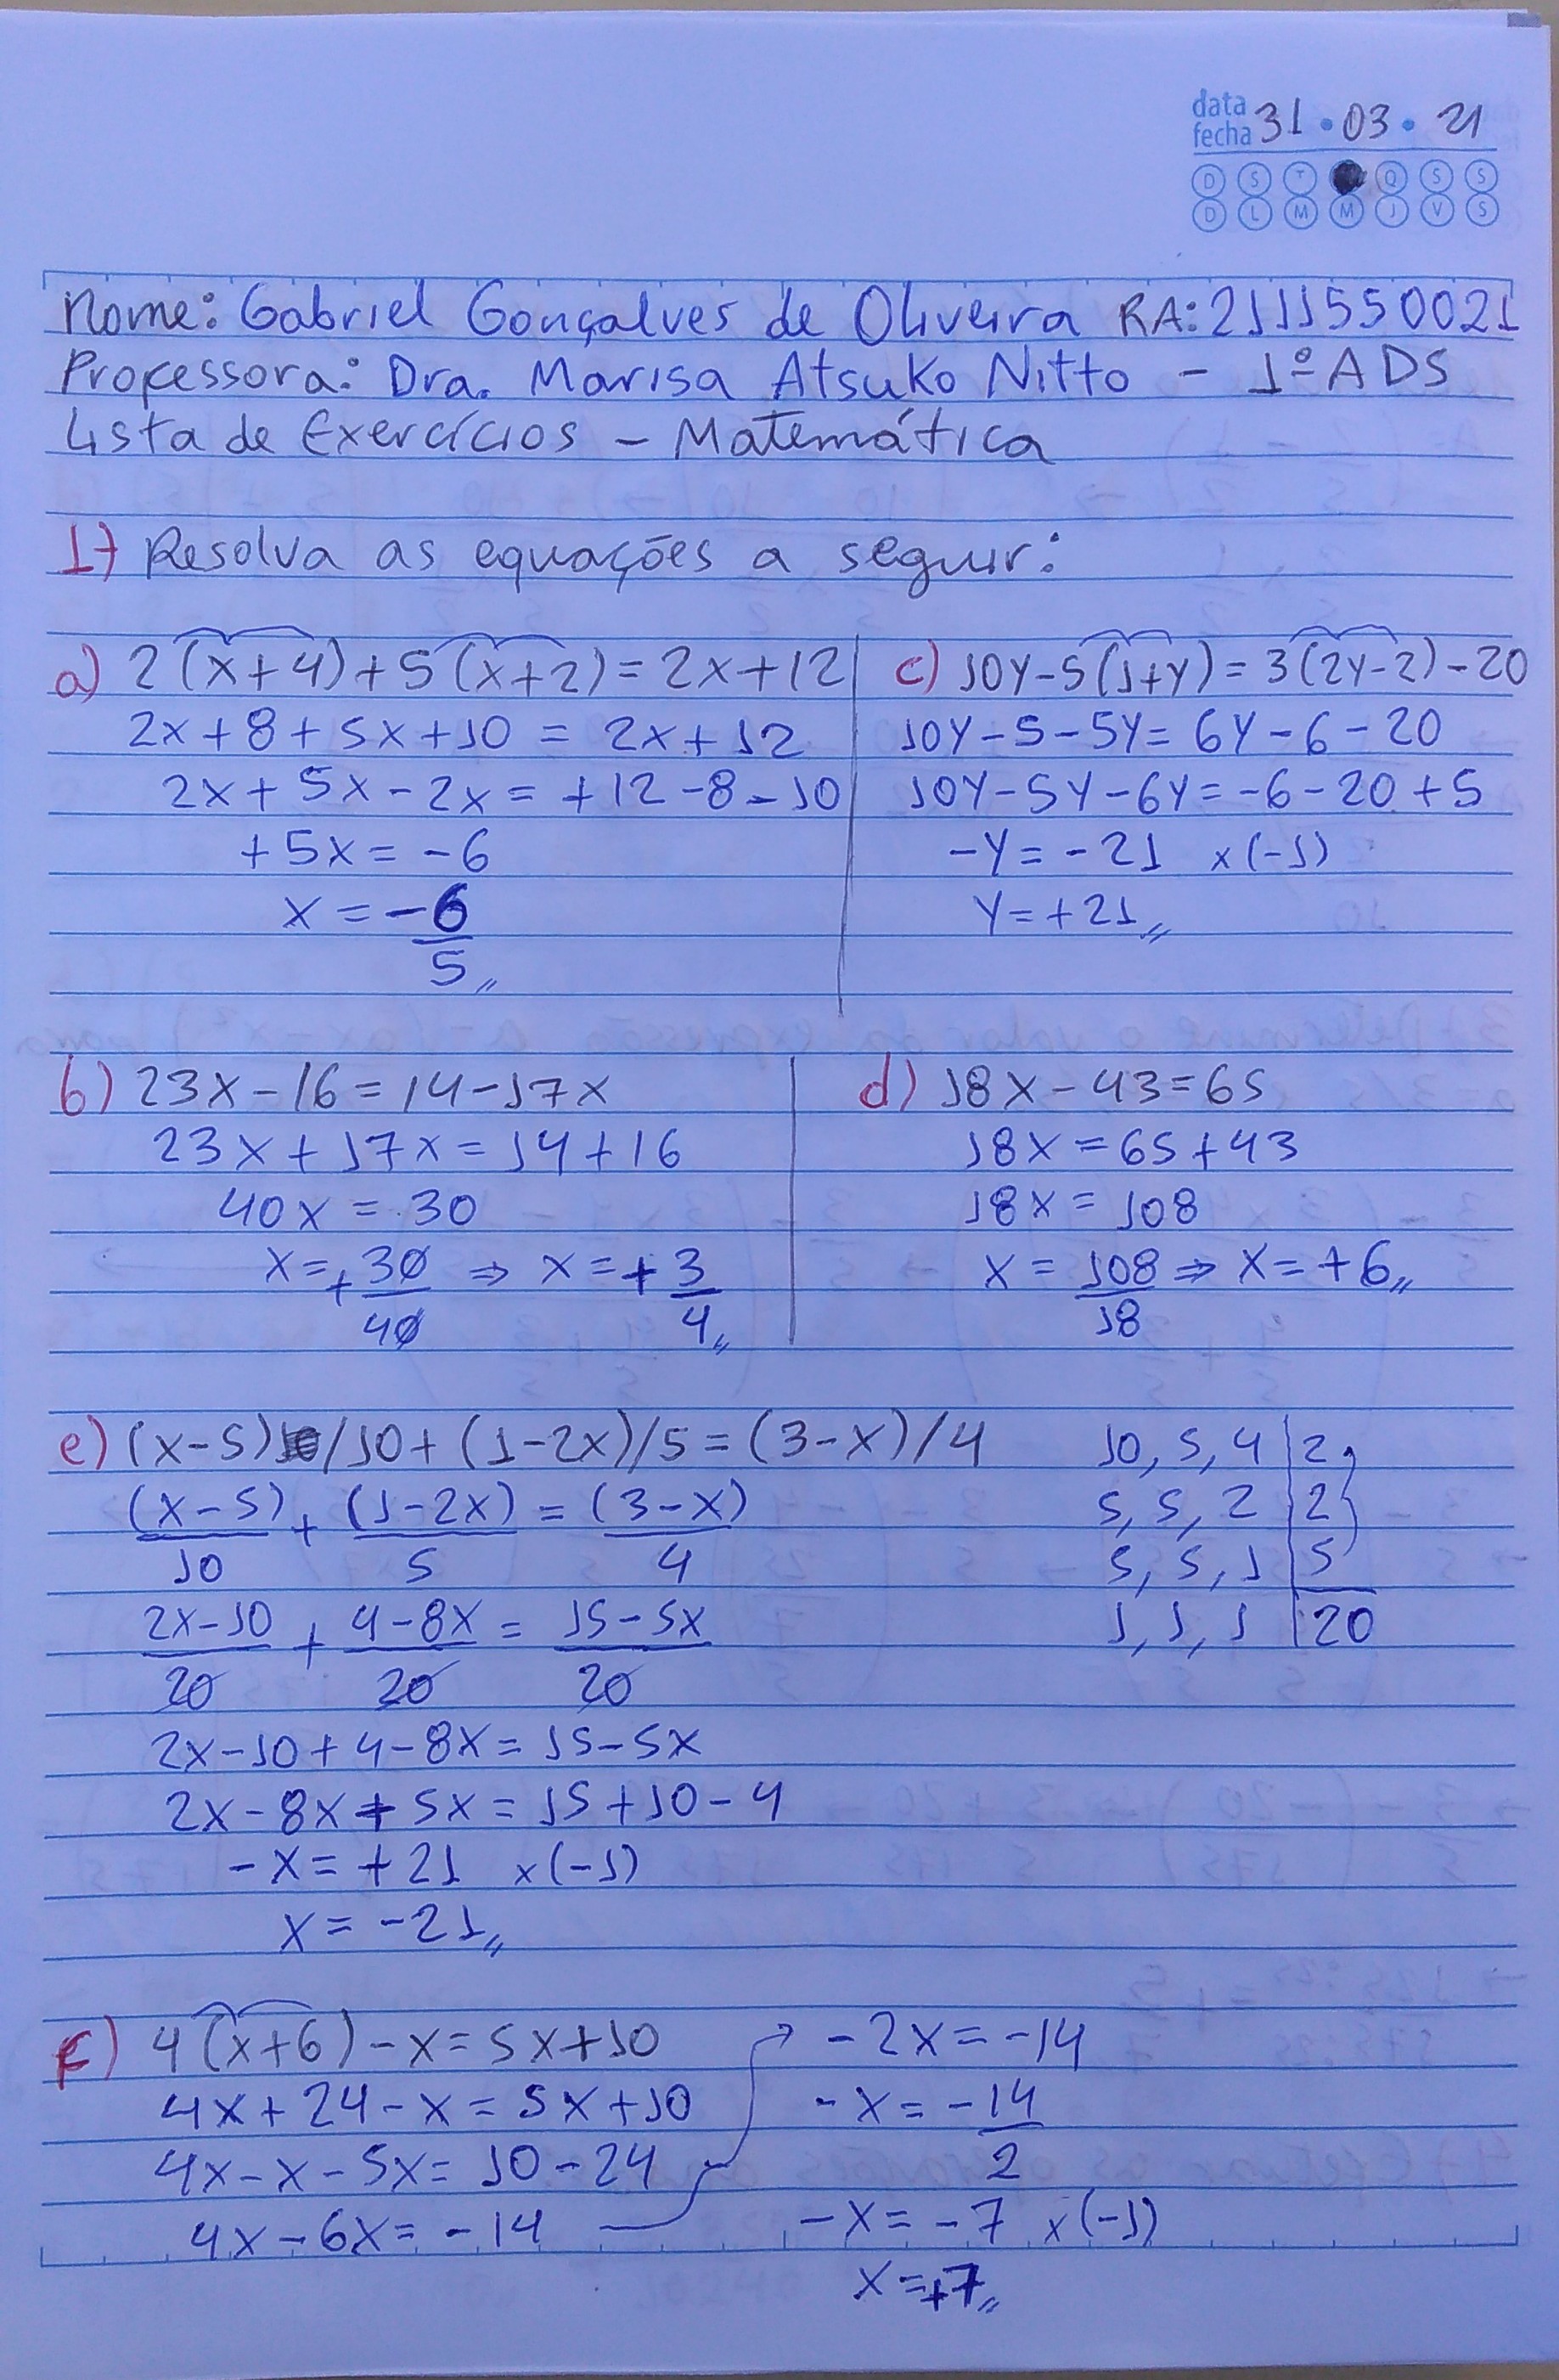 data
fecha 31 • 03 • 21
D S T Q S S
D L M M J V S
Nome: Gabriel Gonçalves de Oliveira RA: 2111550021
Professora: Dra. Marisa Atsuko Nitto - 1º ADS
Lista de Exercícios - Matemática
1) Resolva as equações a seguir:
a) 2(x+4)+5(x+2)=2x+12
2x+8+5x+10 = 2x+12
2x+5x-2x = +12-8-10
+5x = -6
x = -6/5
c) 10y-5(1+y)=3(2y-2)-20
10y-5-5y = 6y-6-20
10y-5y-6y = -6-20+5
-y = -21 x(-1)
y = +21
b) 23x-16=14-17x
23x+17x=14+16
40x = 30
x=+30/40 ⇒ x=+3/4
d) 18x-43=65
18x=65+43
18x = 108
x = 108/18 ⇒ x=+6
e) (x-5)/10+(1-2x)/5=(3-x)/4
(x-5)/10 + (1-2x)/5 = (3-x)/4
2x-10/20 + 4-8x/20 = 15-5x/20
2x-10+4-8x=15-5x
2x-8x+5x=15+10-4
-x=+21 x(-1)
x = -21
10, 5, 4 | 2
5, 5, 2 | 2
5, 5, 1 | 5
1, 1, 1 | 20
f) 4(x+6)-x=5x+10
4x+24-x=5x+10
4x-x-5x=10-24
4x-6x=-14
-2x=-14
-x=-14/2
-x=-7 x(-1)
x=+7